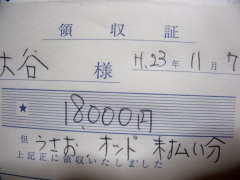 領収証
大谷 様 H.23年11月7
★ 18000円
但 うさお、オッド 未払い分
上記正に領収いたしました